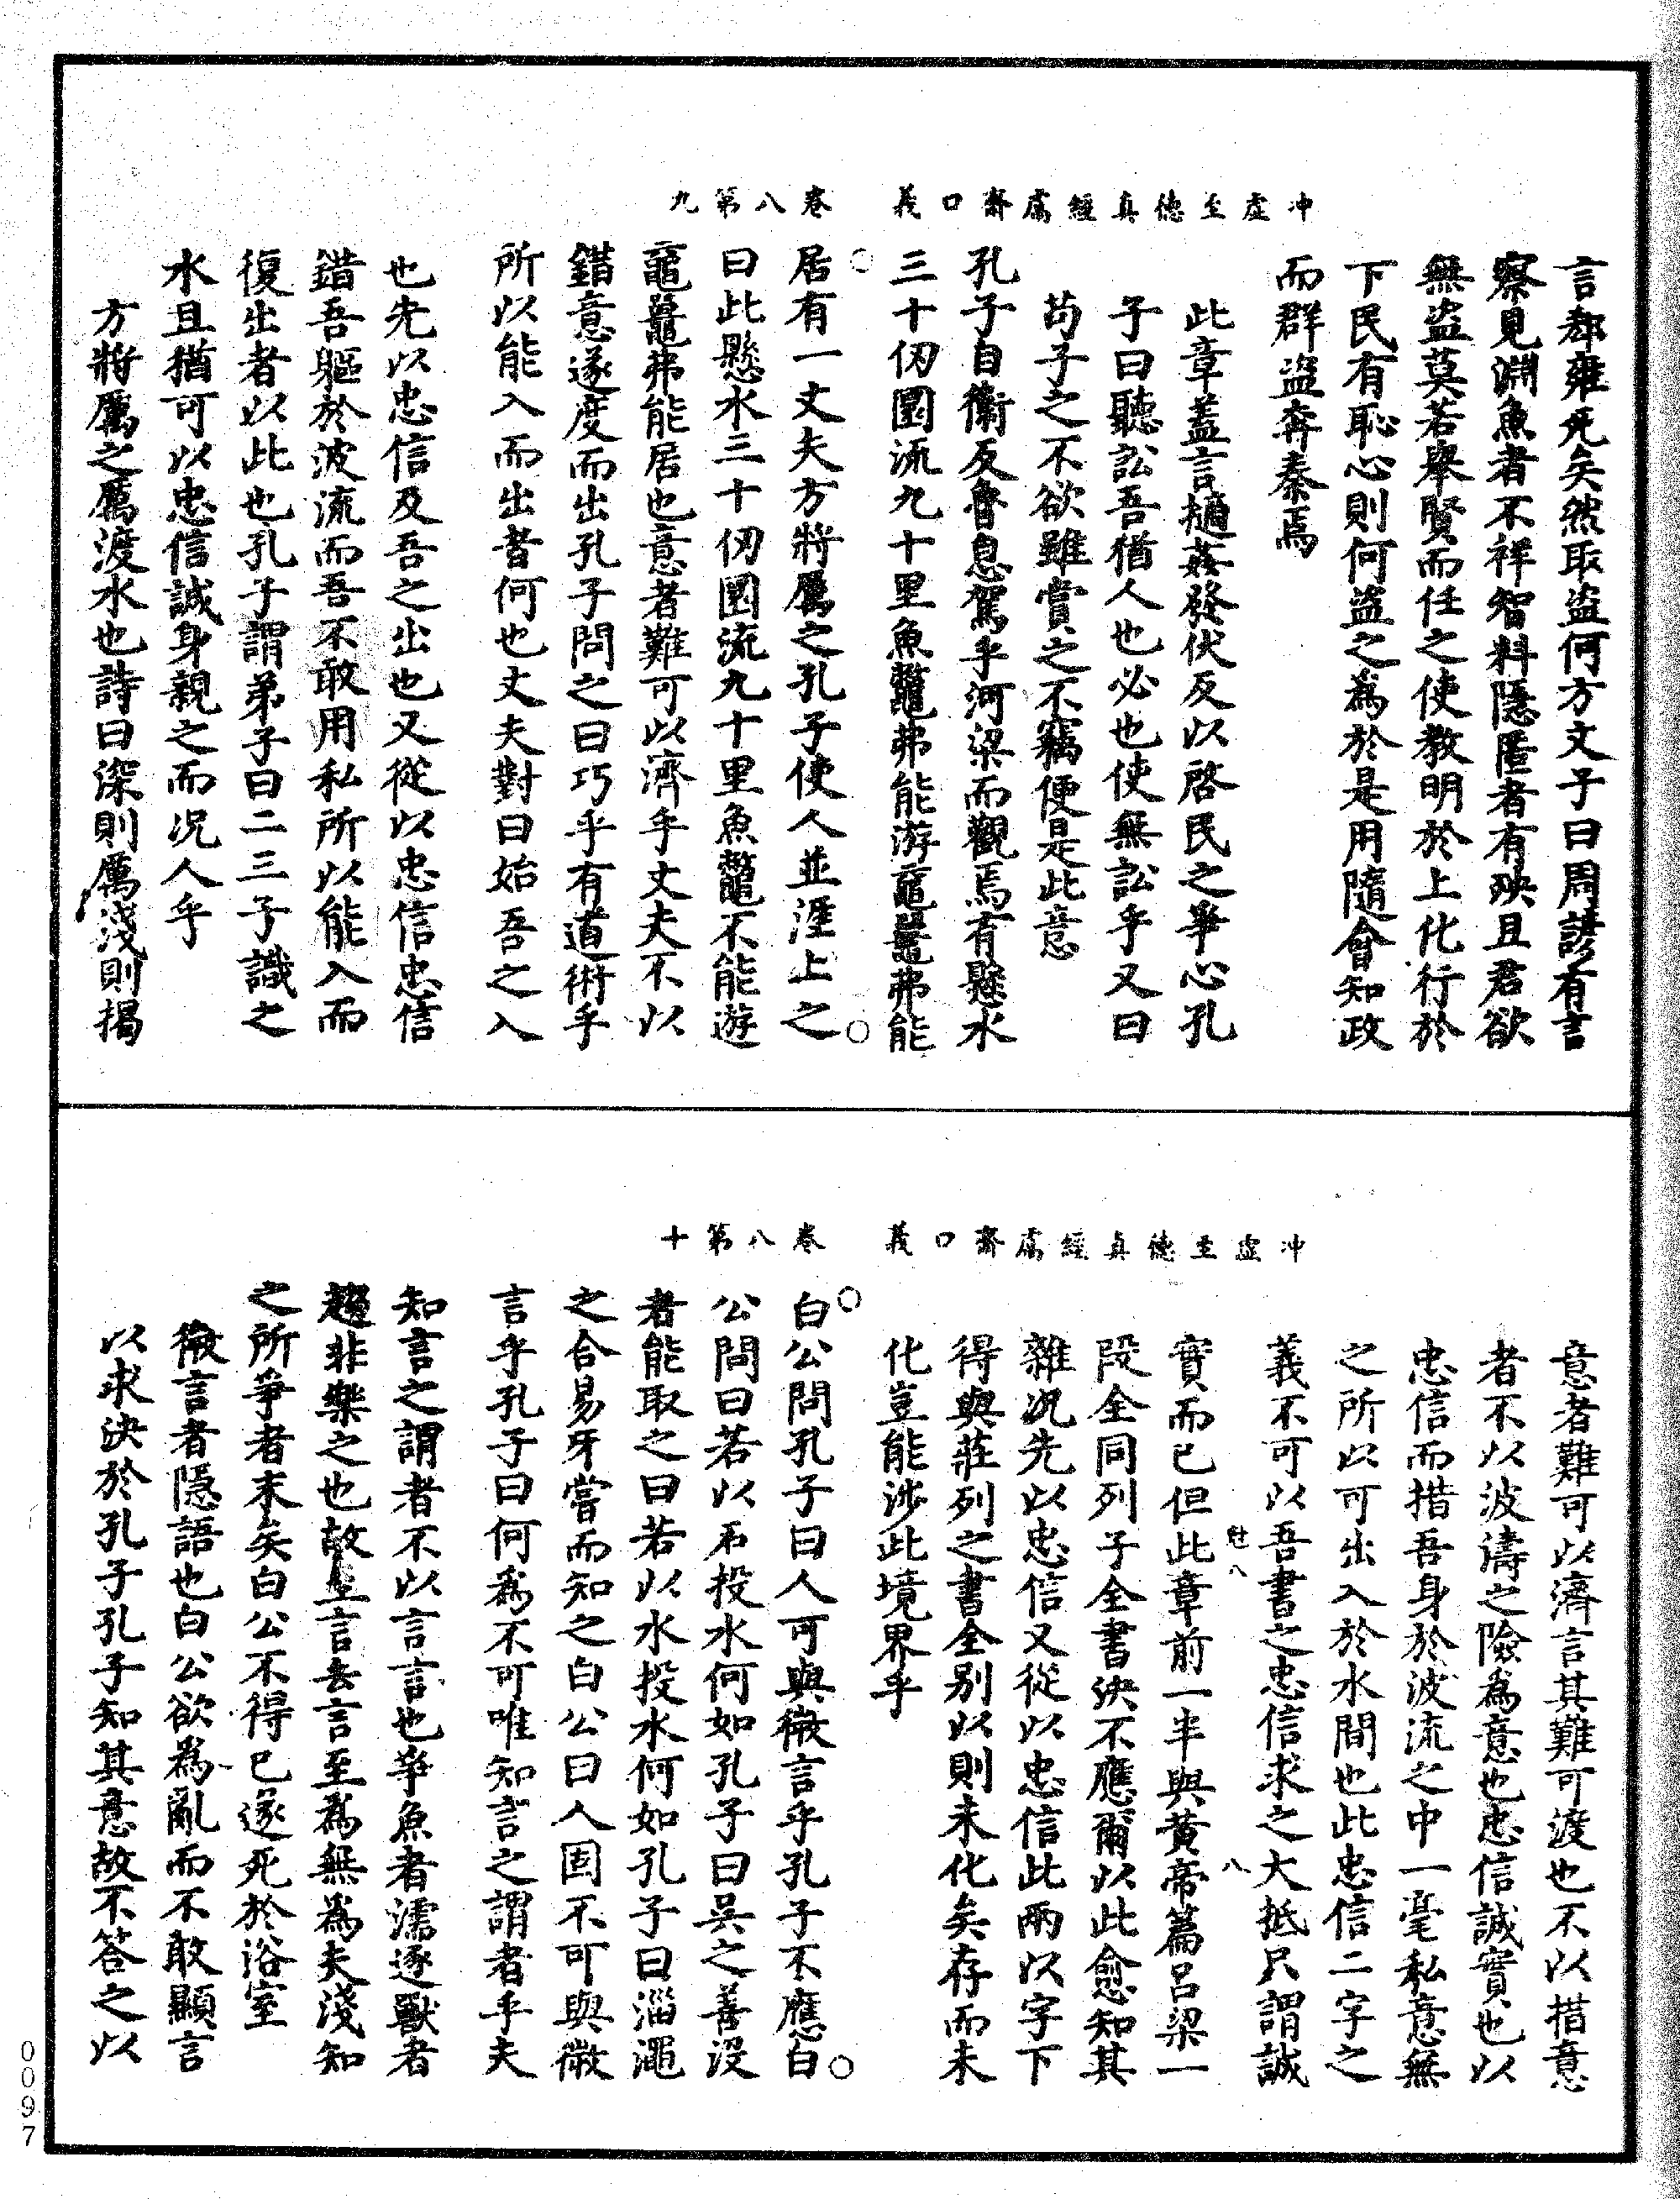 冲虛至德真經鬳齋口義　卷八第九
言郄雍死矣然取盜何方文子曰周諺有言
察見淵魚者不祥智料隱匿者有殃且君欲
無盜莫若舉賢而任之使教明於上化行於
下民有恥心則何盜之為於是用隨會知政
而群盜奔秦焉
此章蓋言擿姦發伏反以啓民之爭心孔
子曰聽訟吾猶人也必也使無訟乎又曰
苟子之不欲雖賞之不竊便是此意
孔子自衛反魯息駕乎河梁而觀焉有懸水
三十仞圜流九十里魚鼈弗能游黿鼉弗能
居有一丈夫方將厲之孔子使人並涯上之
曰此懸水三十仞圜流九十里魚鼈不能遊
黿鼉弗能居也意者難可以濟乎丈夫不以
錯意遂度而出孔子問之曰巧乎有道術乎
所以能入而出者何也丈夫對曰始吾之入
也先以忠信及吾之出也又從以忠信忠信
錯吾軀於波流而吾不敢用私所以能入而
復出者以此也孔子謂弟子曰二三子識之
水且猶可以忠信誠身親之而况人乎
方將厲之厲渡水也詩曰深則厲淺則揭
冲虛至德真經鬳齋口義　卷八第十
意者難可以濟言其難可渡也不以措意
者不以波濤之險為意也忠信誠實也以
忠信而措吾身於波流之中一毫私意無
之所以可出入於水間也此忠信二字之
義不可以吾書之忠信求之大抵只謂誠
實而已但此章前一半與黃帝篇呂梁一
段全同列子全書決不應爾以此愈知其
雜况先以忠信又從以忠信此兩以字下
得與莊列之書全别以則未化矣存而未
化豈能涉此境界乎
白公問孔子曰人可與微言乎孔子不應白
公問曰若以石投水何如孔子曰吳之善没
者能取之曰若以水投水何如孔子曰淄澠
之合易牙嘗而知之白公曰人固不可與微
言乎孔子曰何為不可唯知言之謂者乎夫
知言之謂者不以言言也爭魚者濡逐獸者
趨非樂之也故至言去言至為無為夫淺知
之所爭者末矣白公不得已遂死於浴室
微言者隱語也白公欲為亂而不敢顯言
以求決於孔子孔子知其意故不答之以
0097